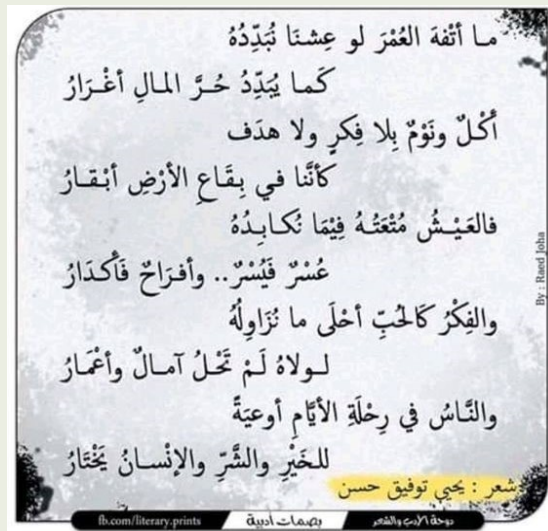 مـا أتْفهَ العُمْرَ لو عِشنَا نُبَدِّدُهُ
كَمـا يُبَدِّدُ حُـرَّ المـالِ أغْـرَارُ
أكْـلٌ ونَوْمٌ بِلا فِكرٍ ولا هدَف
كأنَّنا في بِـقَـاعِ الأرْضِ أبْـقـارُ
فالعَيْـشُ مُتْعَتُـهُ فِيْمَا نُكـابِـدُهُ
عُسْرٌ فَيُسْرٌ.. وأفـرَاحٌ فَأكْـدَارُ
والفِكْرُ كَالحُبِّ أحْلَى ما نُزَاوِلُهُ
لـولاهُ لَـمْ تَحْـلُ آمـالٌ وأعْمَارُ
والنَّاسُ في رِحْلَةِ الأيَّامِ أوعيَةً
للـخَيْرِ والشَّرِّ والإنْسـانُ يَخْتَارُ
شعر : يحيى توفيق حسن
By : Raed Joha
دوحة الأدب والشعر
بصمات أدبية
fb.com/literary.prints